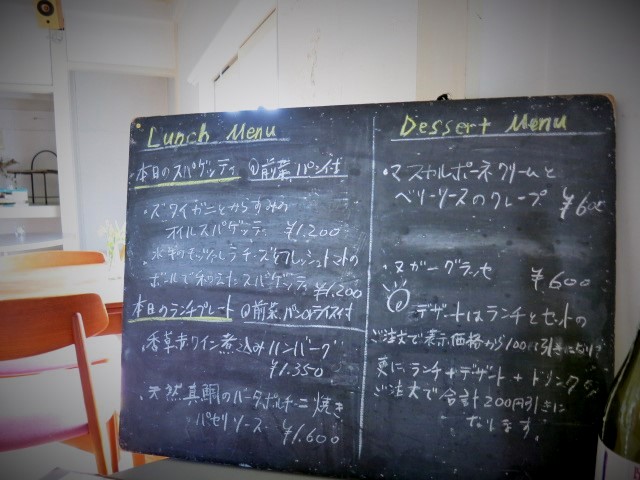 Lunch Menu
・本日のスパゲッティ @前菜、パン付
・ズワイガニとからすみの
オイルスパゲッティ ¥1.200
・水牛のモッツァレラチーズとフレッシュトマトの
ボールで和えたスパゲッティ ¥1,200
本日のランチプレート @前菜、パンorライス付
・香草赤ワイン煮込みハンバーグ
¥1.350
・天然真鯛のバターポルチーニ焼き
パセリソース ¥1.600
Dessert Menu
・マスカルポーネクリームと
ベリーソースのクレープ ¥600
・ヌガーグラッセ ¥.600
デザートはランチとセットの
ご注文で表示価格から100円引きになります
更に、ランチ+デザート+ドリンクを
ご注文で合計200円引きに
なります。